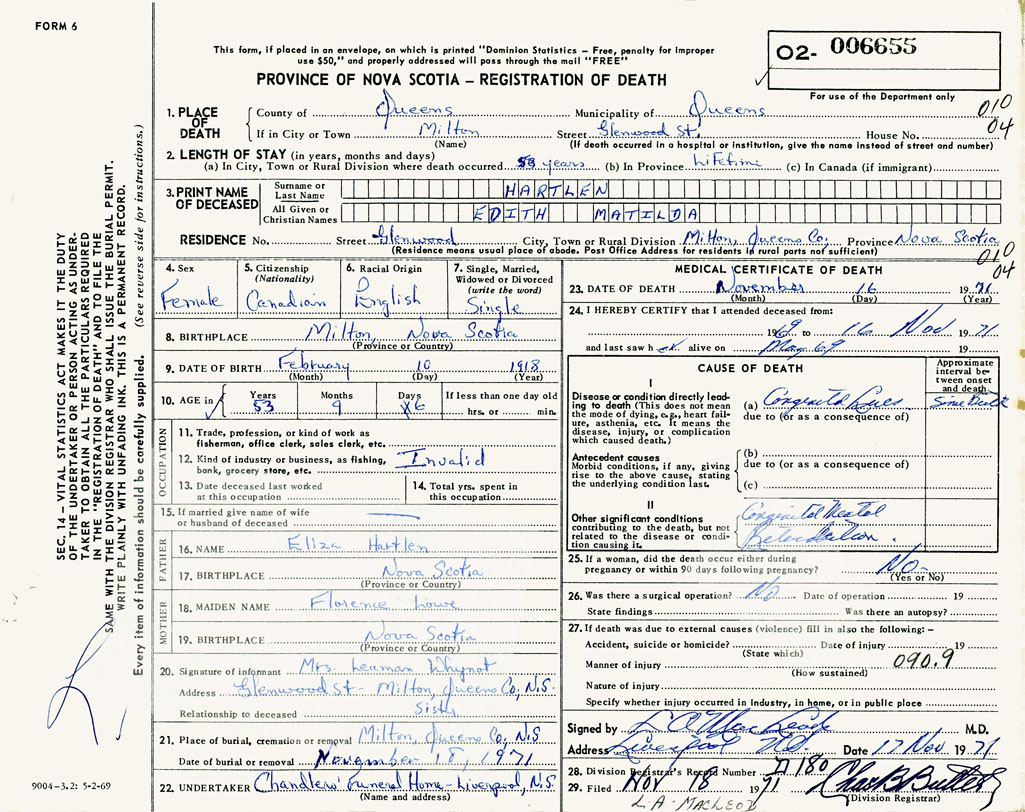 FORM 6
This form, if placed in an envelope, on which is printed "Dominion Statistics – Free, penalty for improper
use $50," and properly addressed will pass through the mail "FREE"
O2- 006655
PROVINCE OF NOVA SCOTIA – REGISTRATION OF DEATH
For use of the Department only
010
04
1. PLACE OF DEATH
County of Queens Municipality of Queens
If in City or Town Milton Street Glenwood St. House No.
(Name) (If death occurred in a hospital or institution, give the name instead of street and number)
2. LENGTH OF STAY (in years, months and days)
(a) In City, Town or Rural Division where death occurred 53 years (b) In Province Lifetime (c) In Canada (if immigrant)
3. PRINT NAME OF DECEASED
Surname or Last Name HARTLEN
All Given or Christian Names EDITH MATILDA
RESIDENCE No. Street Glenwood City, Town or Rural Division Milton, Queens Co, Province Nova Scotia
(Residence means usual place of abode. Post Office Address for residents in rural parts not sufficient)
010
04
4. Sex
Female
5. Citizenship
(Nationality)
Canadian
6. Racial Origin
English
7. Single, Married,
Widowed or Divorced
(write the word)
Single
8. BIRTHPLACE Milton, Nova Scotia
(Province or Country)
9. DATE OF BIRTH February 10 1918
(Month) (Day) (Year)
10. AGE in
Years 53
Months 9
Days 6
If less than one day old
hrs. or min.
OCCUPATION
11. Trade, profession, or kind of work as
fisherman, office clerk, sales clerk, etc.
12. Kind of industry or business, as fishing,
bank, grocery store, etc. Invalid
13. Date deceased last worked
at this occupation
14. Total yrs. spent in
this occupation
15. If married give name of wife
or husband of deceased
FATHER
16. NAME Eliza Hartlen
17. BIRTHPLACE Nova Scotia
(Province or Country)
MOTHER
18. MAIDEN NAME Florence Lowe
19. BIRTHPLACE Nova Scotia
(Province or Country)
20. Signature of informant Mrs. Leaman Whynot
Address Glenwood St - Milton, Queens Co, N.S.
Relationship to deceased Sister
21. Place of burial, cremation or removal Milton, Queens Co, N.S
Date of burial or removal November 18, 1971
22. UNDERTAKER Chandlers' Funeral Home - Liverpool, N.S.
(Name and address)
MEDICAL CERTIFICATE OF DEATH
23. DATE OF DEATH November 16 1971
(Month) (Day) (Year)
24. I HEREBY CERTIFY that I attended deceased from:
1969 to 16 Nov 1971
and last saw h alive on May 69 19
CAUSE OF DEATH
Approximate
interval be-
tween onset
and death
I
Disease or condition directly lead-
ing to death (This does not mean
the mode of dying, e.g., heart fail-
ure, asthenia, etc. It means the
disease, injury, or complication
which caused death.)
(a) Congenital Lues Since Birth
due to (or as a consequence of)
Antecedent causes
Morbid conditions, if any, giving
rise to the above cause, stating
the underlying condition last.
(b)
due to (or as a consequence of)
(c)
II
Other significant conditions
contributing to the death, but not
related to the disease or condi-
tion causing it.
Congenital Mental
Retardation.
25. If a woman, did the death occur either during
pregnancy or within 90 days following pregnancy? No-
(Yes or No)
26. Was there a surgical operation? No Date of operation 19
State findings Was there an autopsy?
27. If death was due to external causes (violence) fill in also the following: –
Accident, suicide or homicide? Date of injury 19
(State which)
Manner of injury 090.9
(How sustained)
Nature of injury
Specify whether injury occurred in industry, in home, or in public place
Signed by M.D.
Address Liverpool Date 17 Nov 1971
28. Division Registrar's Record Number 180
29. Filed NOV 18 1971
(Division Registrar)
L A MACLEOD
SEC. 14 – VITAL STATISTICS ACT MAKES IT THE DUTY
OF THE UNDERTAKER OR PERSON ACTING AS UNDER-
TAKER TO OBTAIN ALL THE PARTICULARS REQUIRED
IN THE "REGISTRATION OF DEATH" AND TO FILE THE
SAME WITH THE DIVISION REGISTRAR WHO SHALL ISSUE THE BURIAL PERMIT.
WRITE PLAINLY WITH UNFADING INK. THIS IS A PERMANENT RECORD.
Every item of information should be carefully supplied. (See reverse side for instructions.)
9004-3.2: 5-2-69